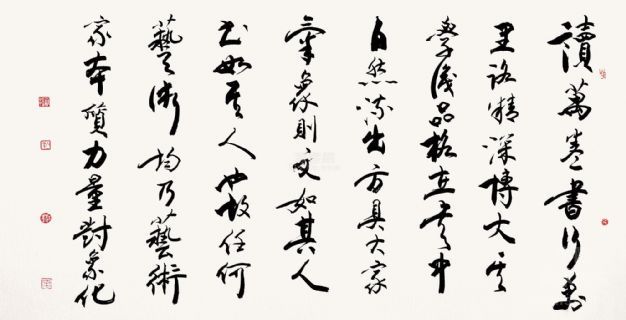 讀萬卷書行萬
里路精深博大其
學品格中
自然流出方具大家
氣象則文如其人
书如其人也故任何
藝術均乃藝術
家本質力量對象化